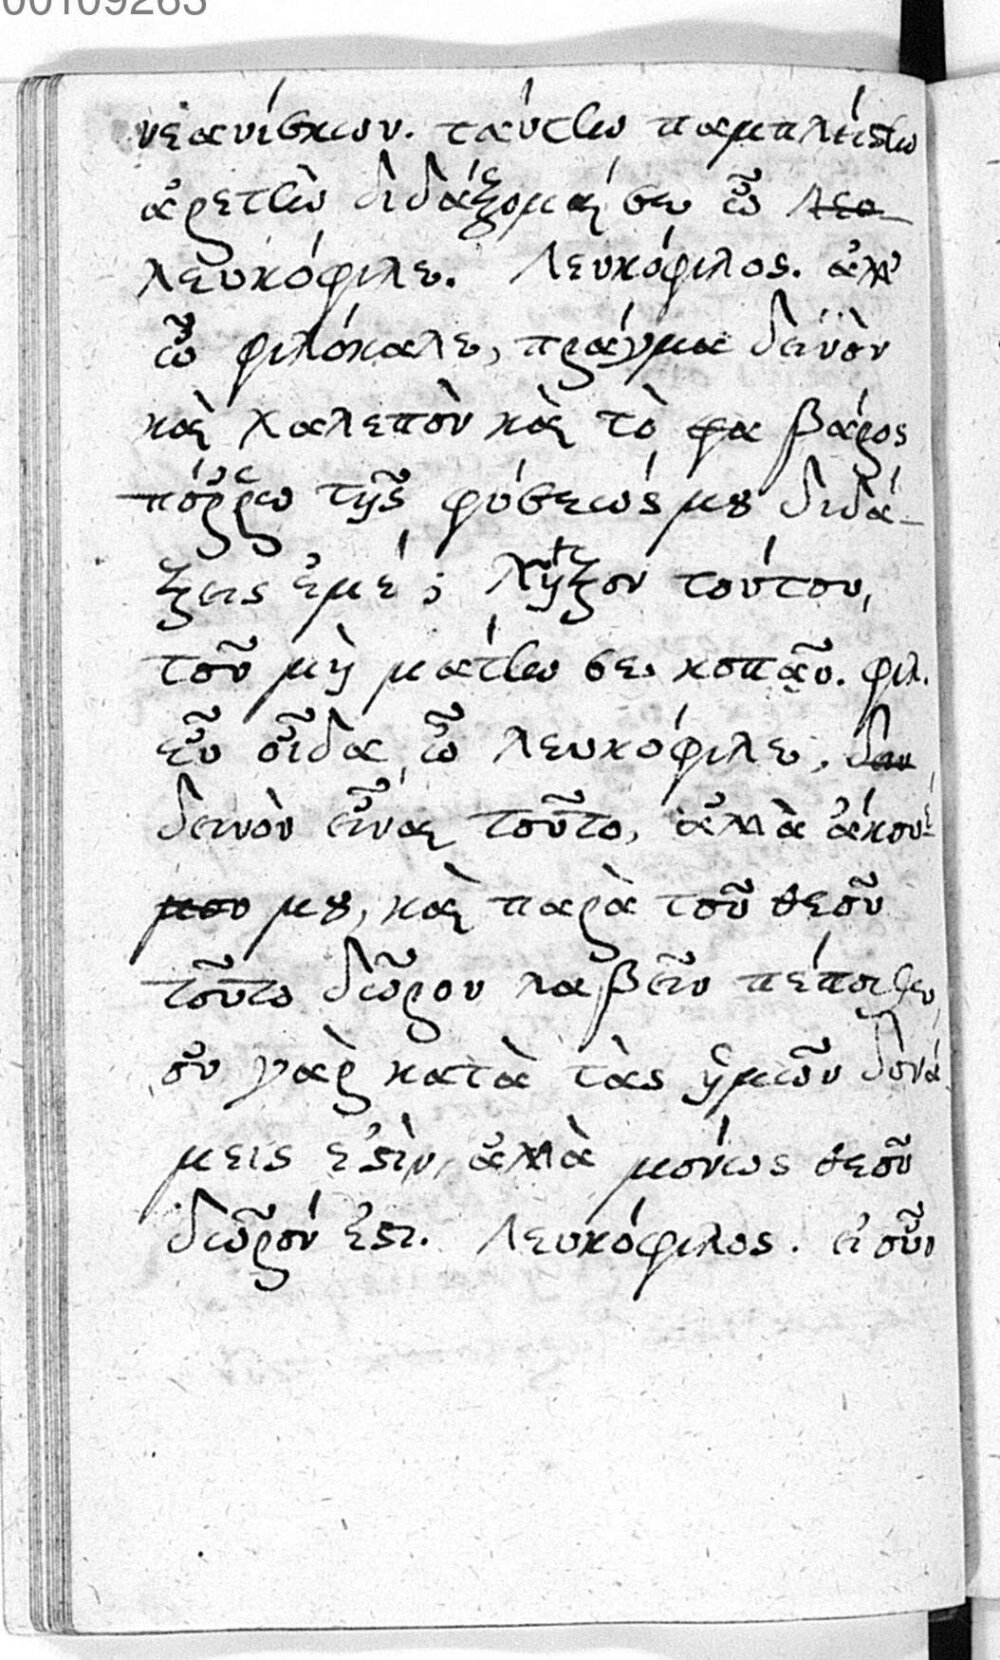 00109263
νεανίσκων. ταύτην παμπλείστην
ἀρετὴν διδάξομαί σε ὦ λεο
λευκόφιλε. Λευκόφιλος. ἀλλ'
ὦ φιλόκαλε, πράγμα δεινὸν
καὶ χαλεπὸν καὶ τὸ φα βάρος
πόῤῥω τῆς φύσεώς μου διδά-
ξεις ἐμέ; λῆξον τούτου,
τοῦ μὴ μάτην σε κοπᾷν. φιλ.
εὖ οἶδα ὦ λευκόφιλε,
δεινὸν εἶναι τοῦτο, ἀλλὰ ἀκου
μου μου, καὶ παρὰ τοῦ θεοῦ
τοῦτο δῶρον λαβεῖν
οὐ γὰρ κατὰ τὰς ἡμῶν δυνά
μεις ἐστὶν, ἀλλὰ μόνως θεοῦ
δῶρόν ἐστι. Λευκόφιλος. εἰ οὖν